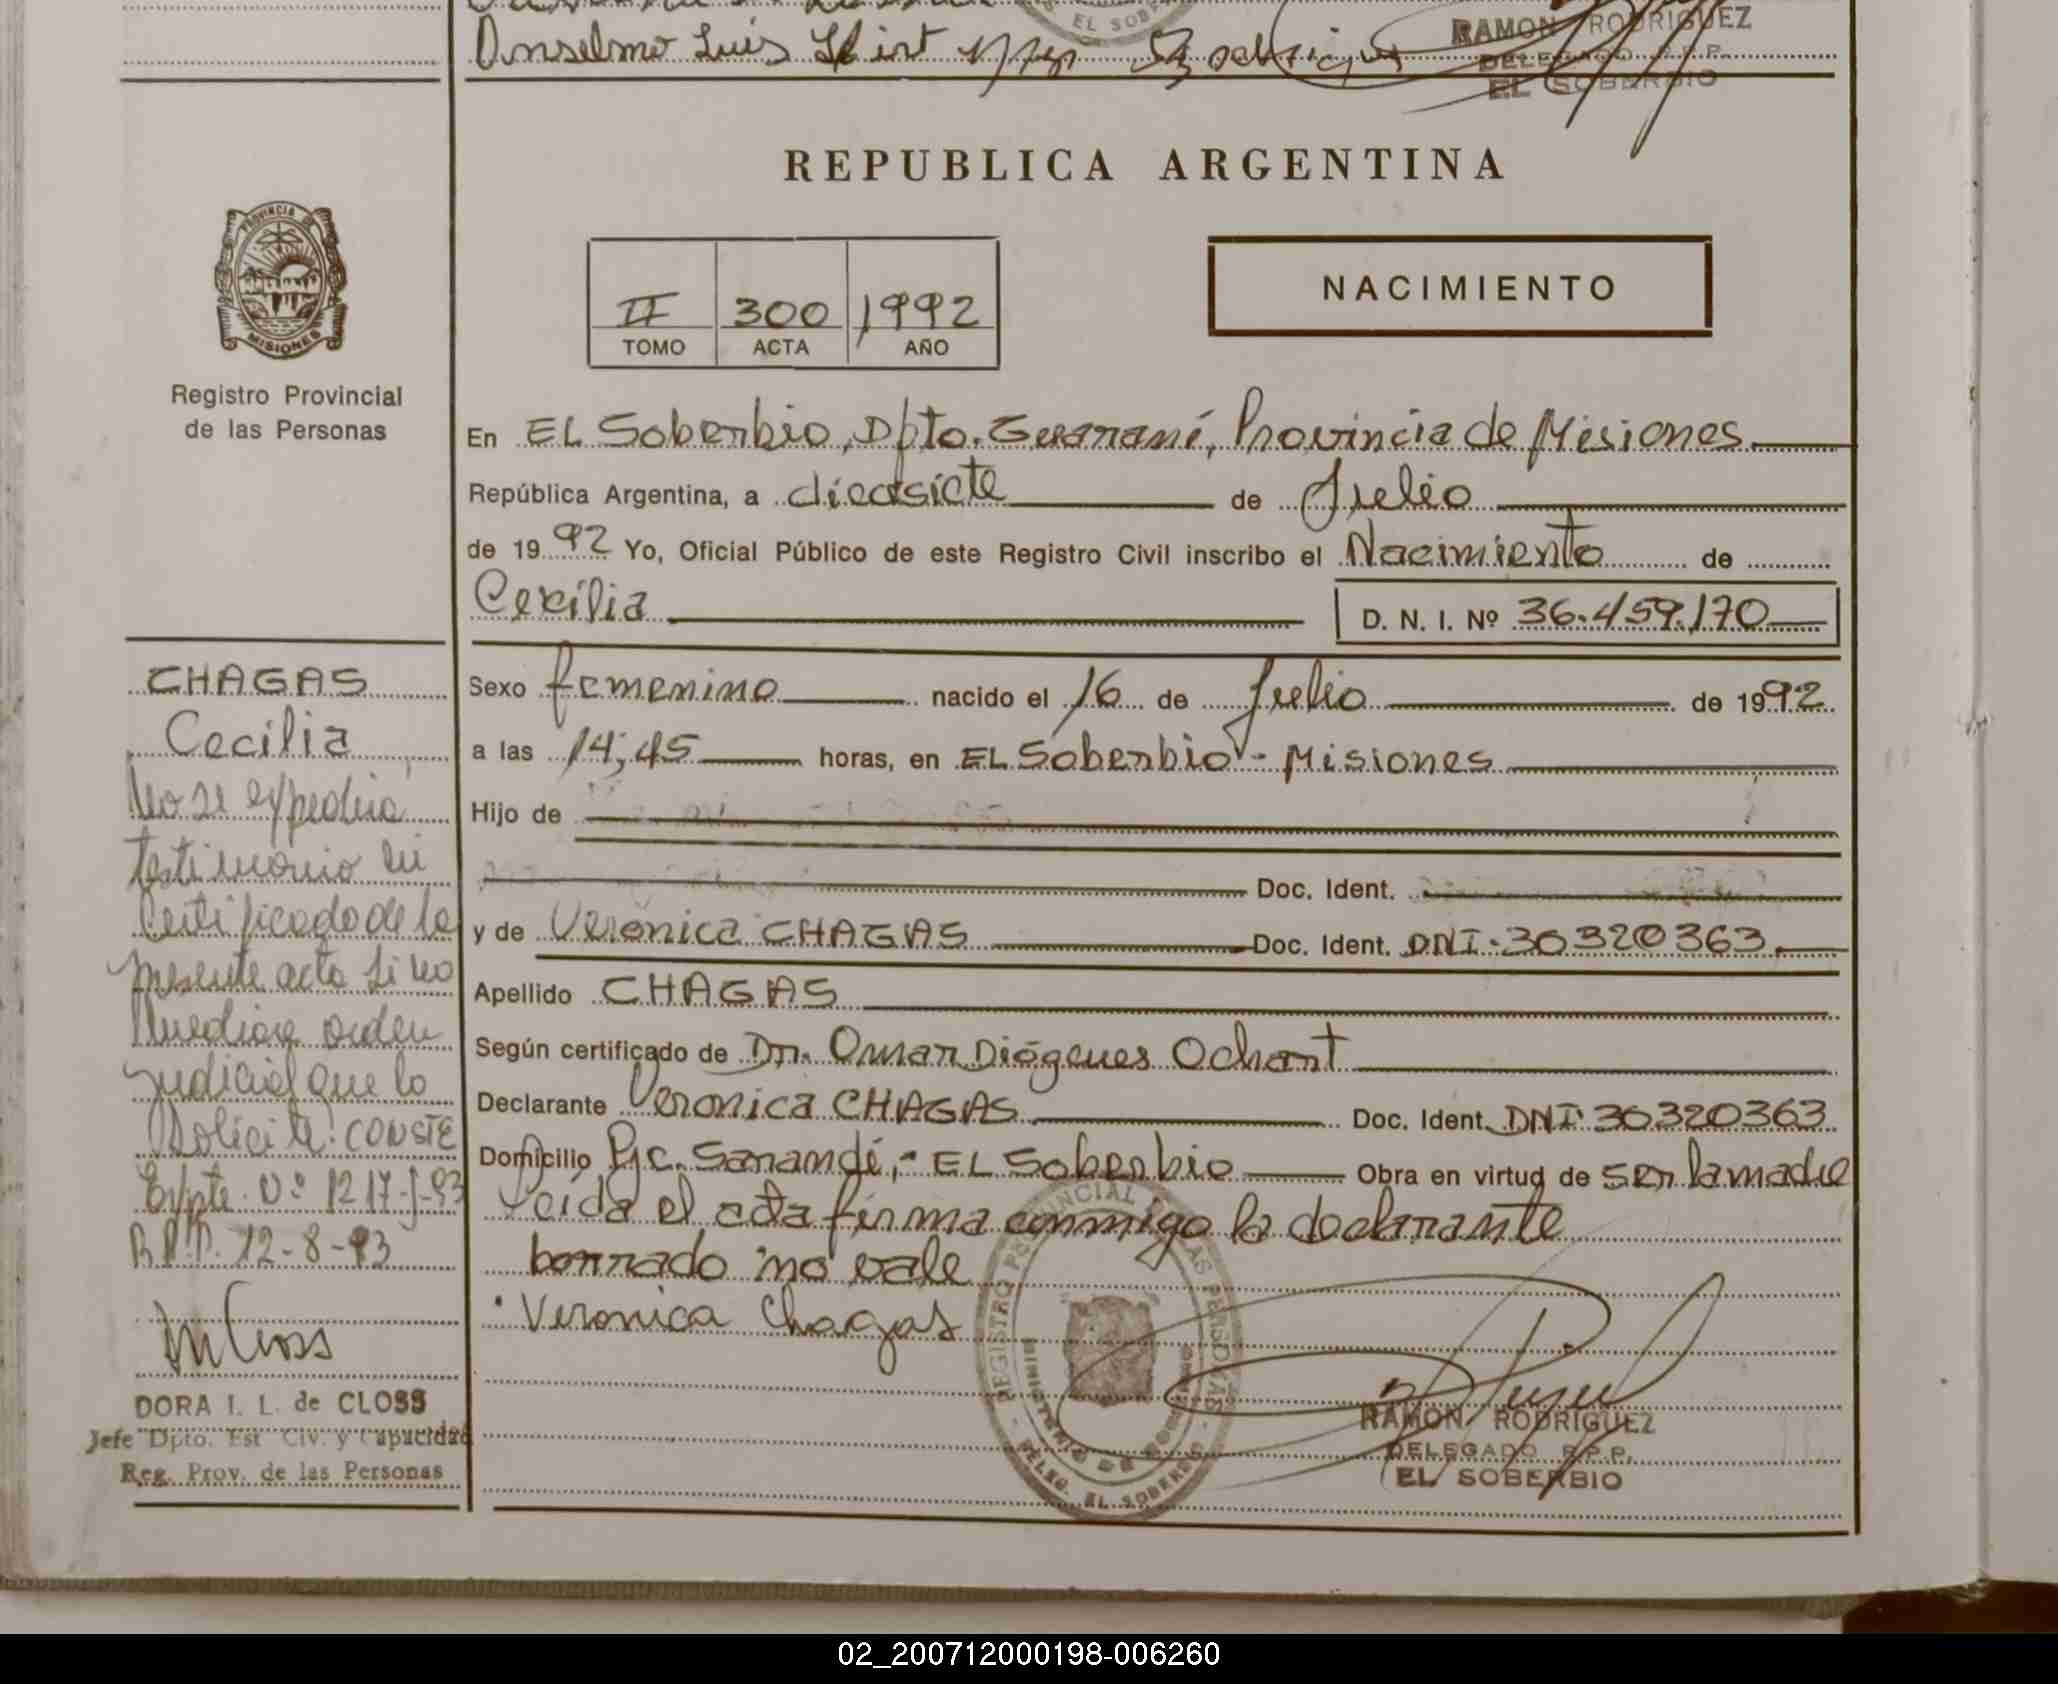 Anselmo Luis
EL SOBE
RAMON RODRIGUEZ
DELEGADO R.P.P.
EL SOBERBIO
REPUBLICA ARGENTINA
PROVINCIA DE
MISIONES
Registro Provincial
de las Personas
II 300 1992
TOMO ACTA AÑO
NACIMIENTO
En EL Soberbio, Dpto. Guaraní, Provincia de Misiones.
República Argentina, a diecisiete de Julio
de 1992 Yo, Oficial Público de este Registro Civil inscribo el Nacimiento de
Cecilia D. N. I. Nº 36.459.170
Sexo femenino nacido el 16 de Julio de 1992
a las 14,45 horas, en EL Soberbio - Misiones
Hijo de
Doc. Ident.
y de Verónica CHAGAS Doc. Ident. DNI. 30320363.
Apellido CHAGAS
Según certificado de Dr. Omar Diógenes Ochart
Declarante Veronica CHAGAS Doc. Ident. DNI 30320363
Domicilio Pje. Sarandí,- EL Soberbio Obra en virtud de ser la madre
Leída el acta firma conmigo la declarante
borrado no vale
Veronica Chagas
REGISTRO PROVINCIAL DE LAS PERSONAS
MINISTERIO DE GOBIERNO
DELEG. EL SOBERBIO
RAMON RODRIGUEZ
DELEGADO R.P.P.
EL SOBERBIO
CHAGAS
Cecilia
No se expedirá
testimonio ni
Certificado de la
presente acta si no
mediare orden
judicial que lo
solicite. CONSTE
Expte. Nº 1217-J-93
R.P.P. 12-8-93
DORA I. L. de CLOSS
Jefe Dpto. Est Civ. y Capacidad
Reg. Prov. de las Personas
02_200712000198-006260